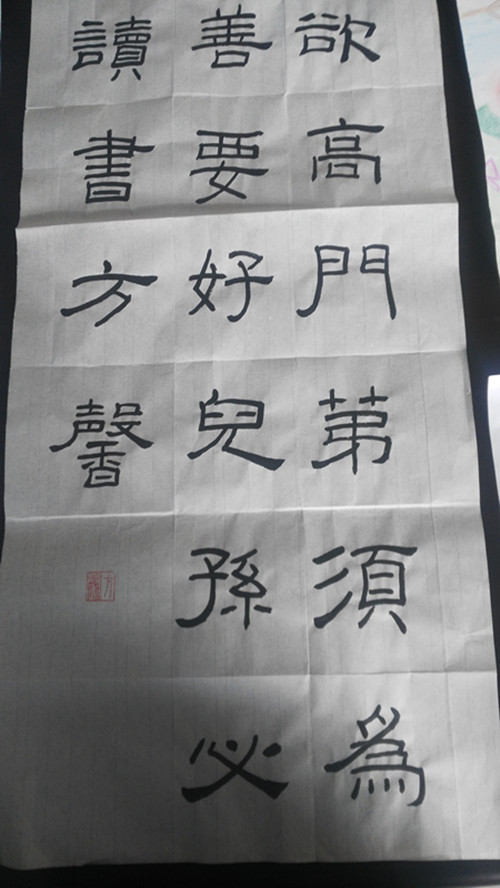 欲高門苐須為
善要好兒孫必
讀書方馨